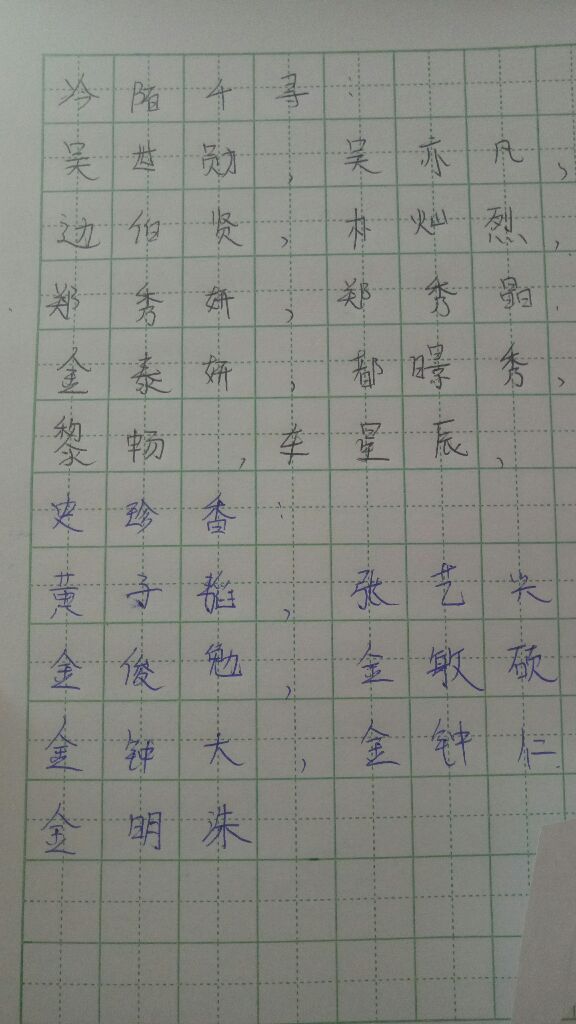 冷陌千寻：
吴世勋，吴亦凡，
边伯贤，朴灿烈，
郑秀妍，郑秀晶.
金泰妍，都暻秀，
黎畅，车星辰，
史珍香：
黄子韬，张艺兴
金俊勉，金敏硕
金钟大，金钟仁
金明洙